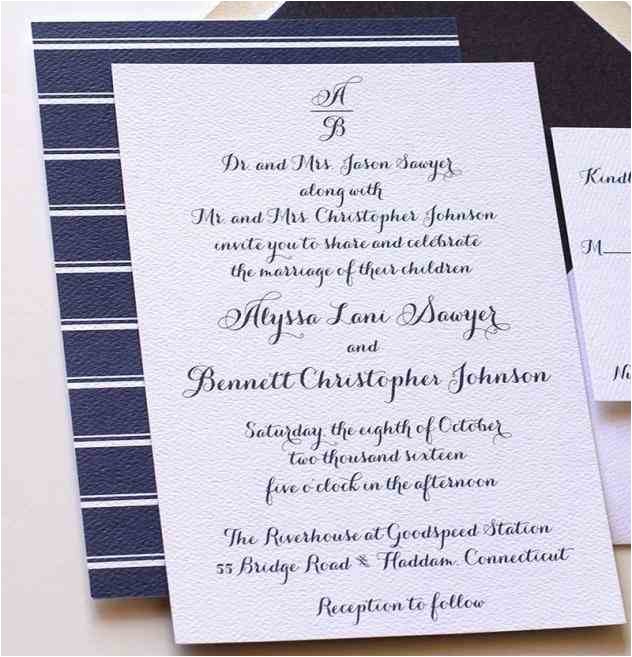 A
B
Dr. and Mrs. Jason Sawyer
along with
Mr. and Mrs. Christopher Johnson
invite you to share and celebrate
the marriage of their children
Alyssa Lani Sawyer
and
Bennett Christopher Johnson
Saturday, the eighth of October
two thousand sixteen
five o'clock in the afternoon
The Riverhouse at Goodspeed Station
55 Bridge Road * Haddam, Connecticut
Reception to follow
M